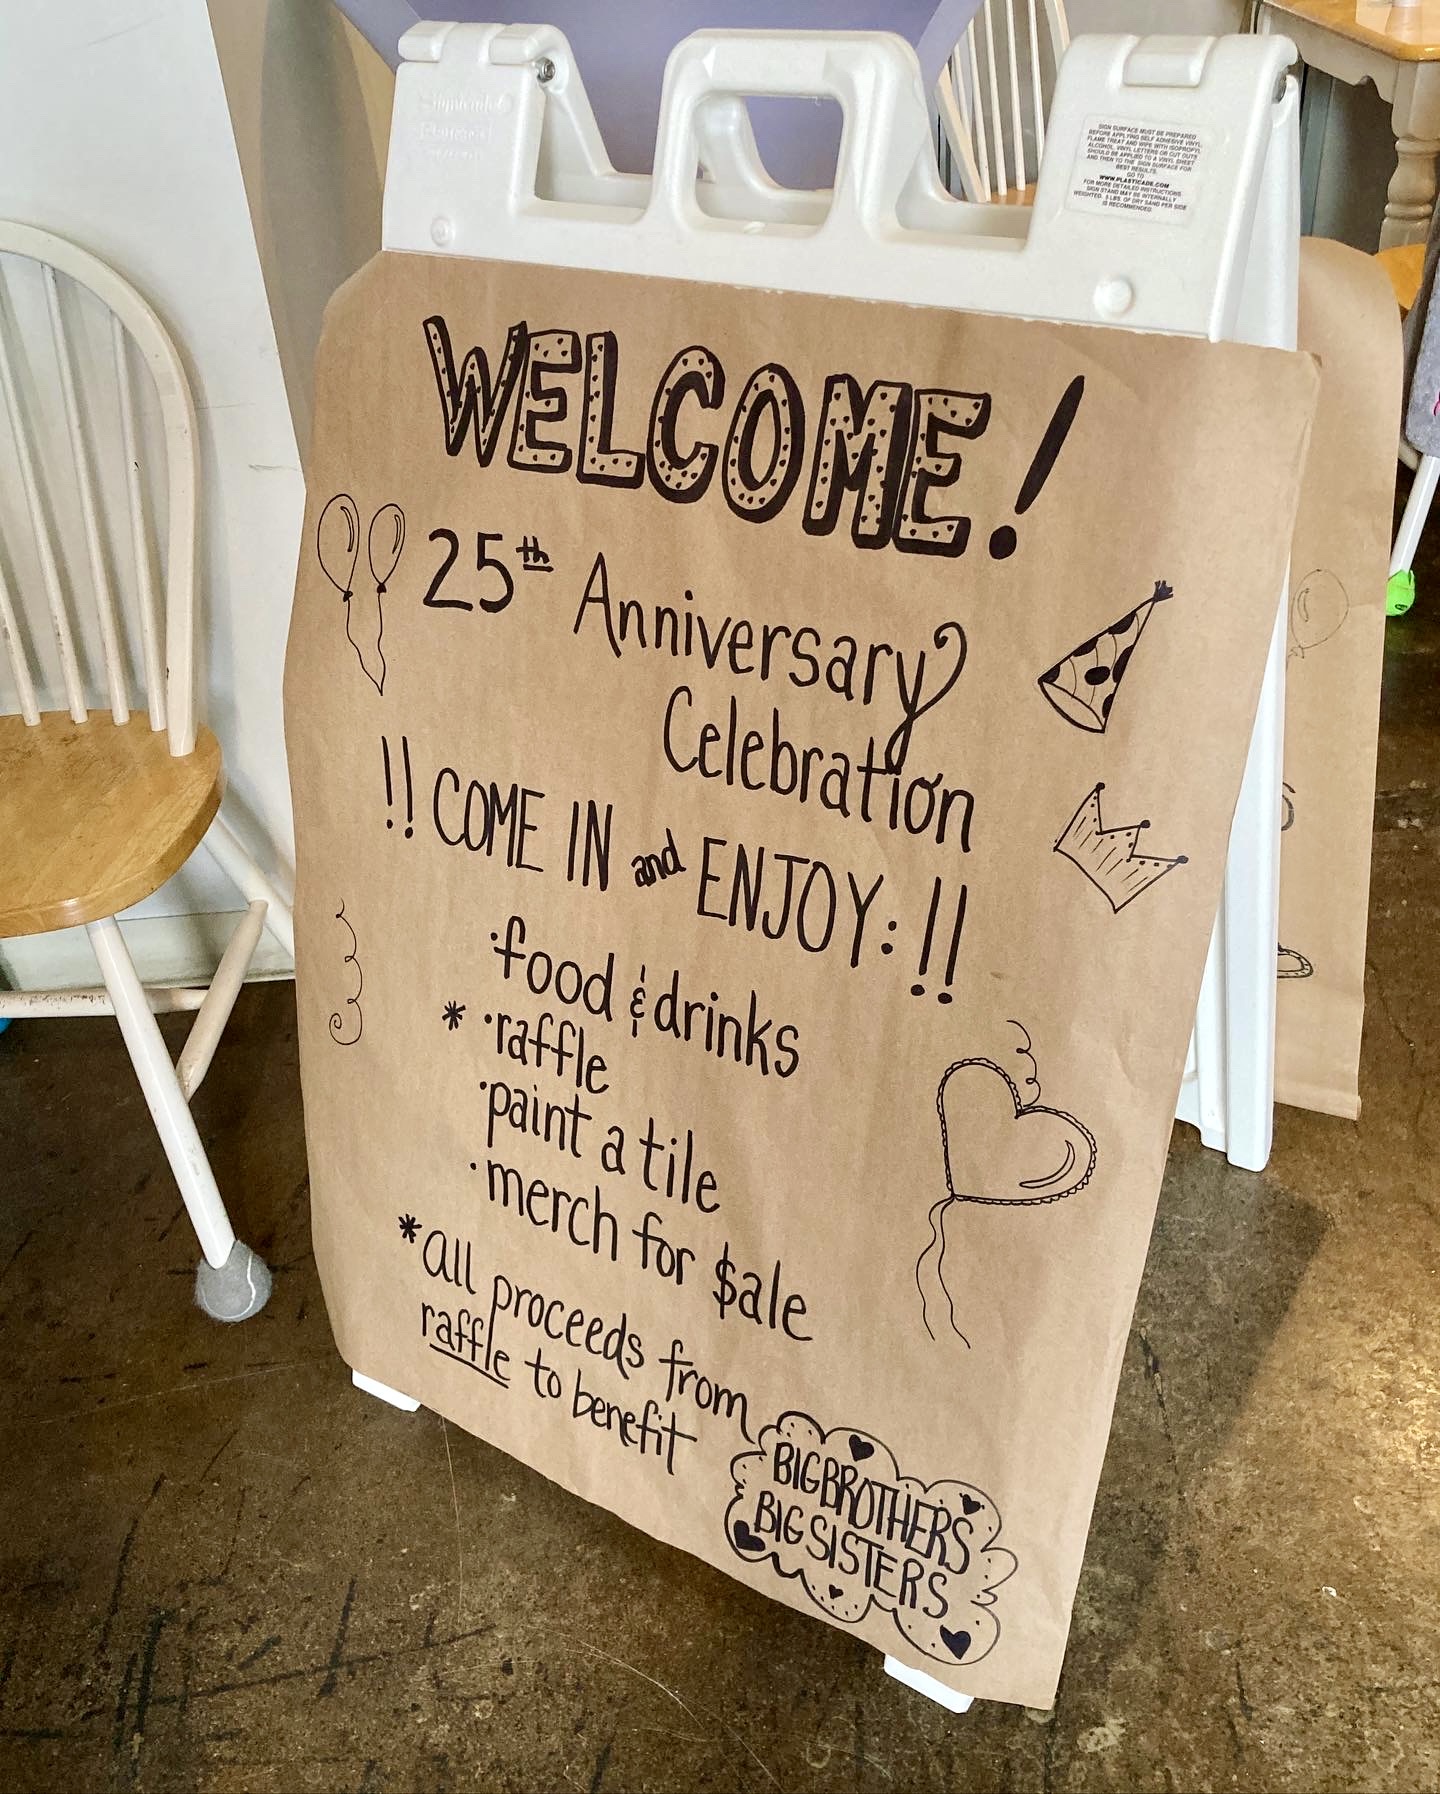 SIGN SURFACE MUST BE PREPARED
BEFORE APPLYING SELF ADHESIVE VINYL.
FLAME TREAT AND WIPE WITH ISOPROPYL
ALCOHOL. VINYL LETTERS OR CUT OUTS
SHOULD BE APPLIED TO A VINYL SHEET
AND THEN TO THE SIGN SURFACE FOR
BEST RESULTS.
GO TO
WWW.PLASTICADE.COM
FOR MORE DETAILED INSTRUCTIONS.
SIGN STAND MAY BE INTERNALLY
WEIGHTED. 5 LBS. OF DRY SAND PER SIDE
IS RECOMMENDED.
WELCOME!
25th Anniversary
Celebration
!! COME IN and ENJOY: !!
·food & drinks
* ·raffle
·paint a tile
·merch for $ale
*all proceeds from
raffle to benefit
BIG BROTHERS
BIG SISTERS